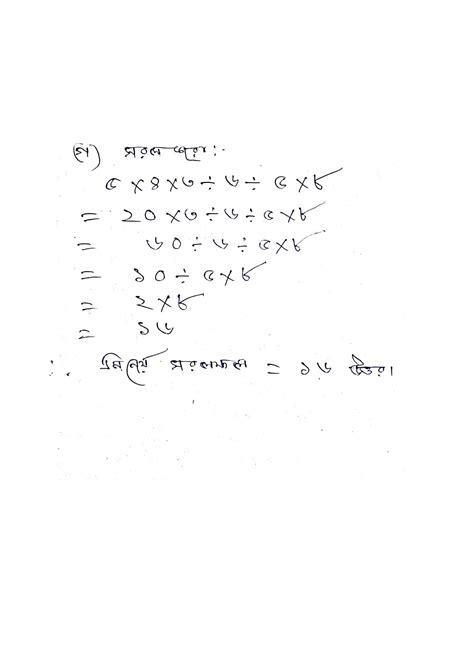 (গ) সরল কর:-
৫ × ৪ × ৩ ÷ ৬ ÷ ৫ × ৮
= ২০ × ৩ ÷ ৬ ÷ ৫ × ৮
= ৬০ ÷ ৬ ÷ ৫ × ৮
= ১০ ÷ ৫ × ৮
= ২ × ৮
= ১৬
∴ নির্ণেয় সরলফল = ১৬ উত্তর।